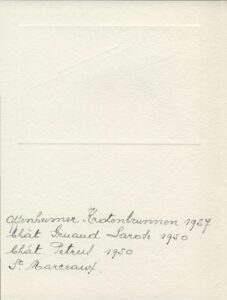 Oppenheimer Krotenbrunnen 1957
Chât. Gruaud Larose 1950
Chât. Petrus 1950
St. Marceaux.